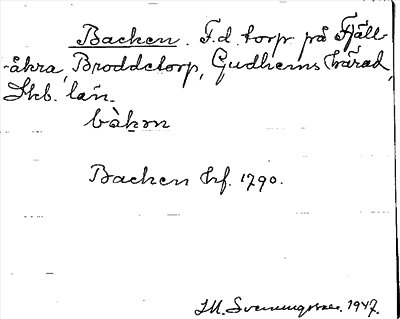 Backen. F.d. torp på Fjäll-
-åkra, Broddetorp, Gudhems härad,
Skb. län.
bàkɱ
Backen hf. 1790.
M. Svenungsson. 1947.